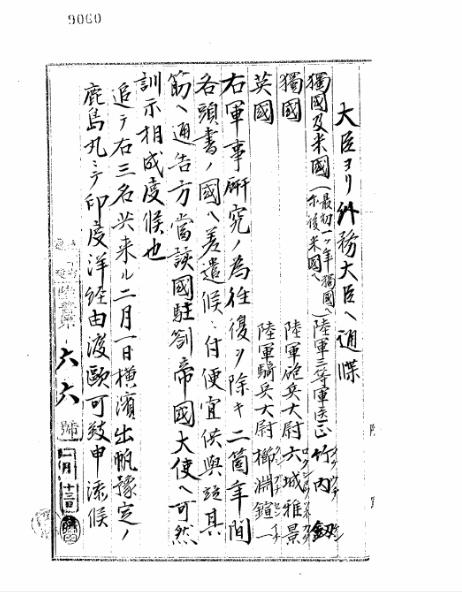 9060
大臣ヨリ外務大臣ヘ通牒
獨國及米國(最初一ヶ年獨國ヘ爾後米國ヘ)陸軍三等軍医正 竹内釼
獨國 陸軍砲兵大尉 六城雅景
英國 陸軍騎兵大尉 櫛淵鍹一
右軍事研究ノ為往復ヲ除キ二箇年間
各頭書ノ國ヘ差遣候ニ付便宜供與方其
筋ヘ通告方當該國駐劄帝國大使ヘ可然
訓示相成度候也
追テ右三名共来ル二月一日横濱出帆豫定ノ
鹿島丸ニテ印度洋経由渡歐可致申添候
陸普第六六號
一月十三日